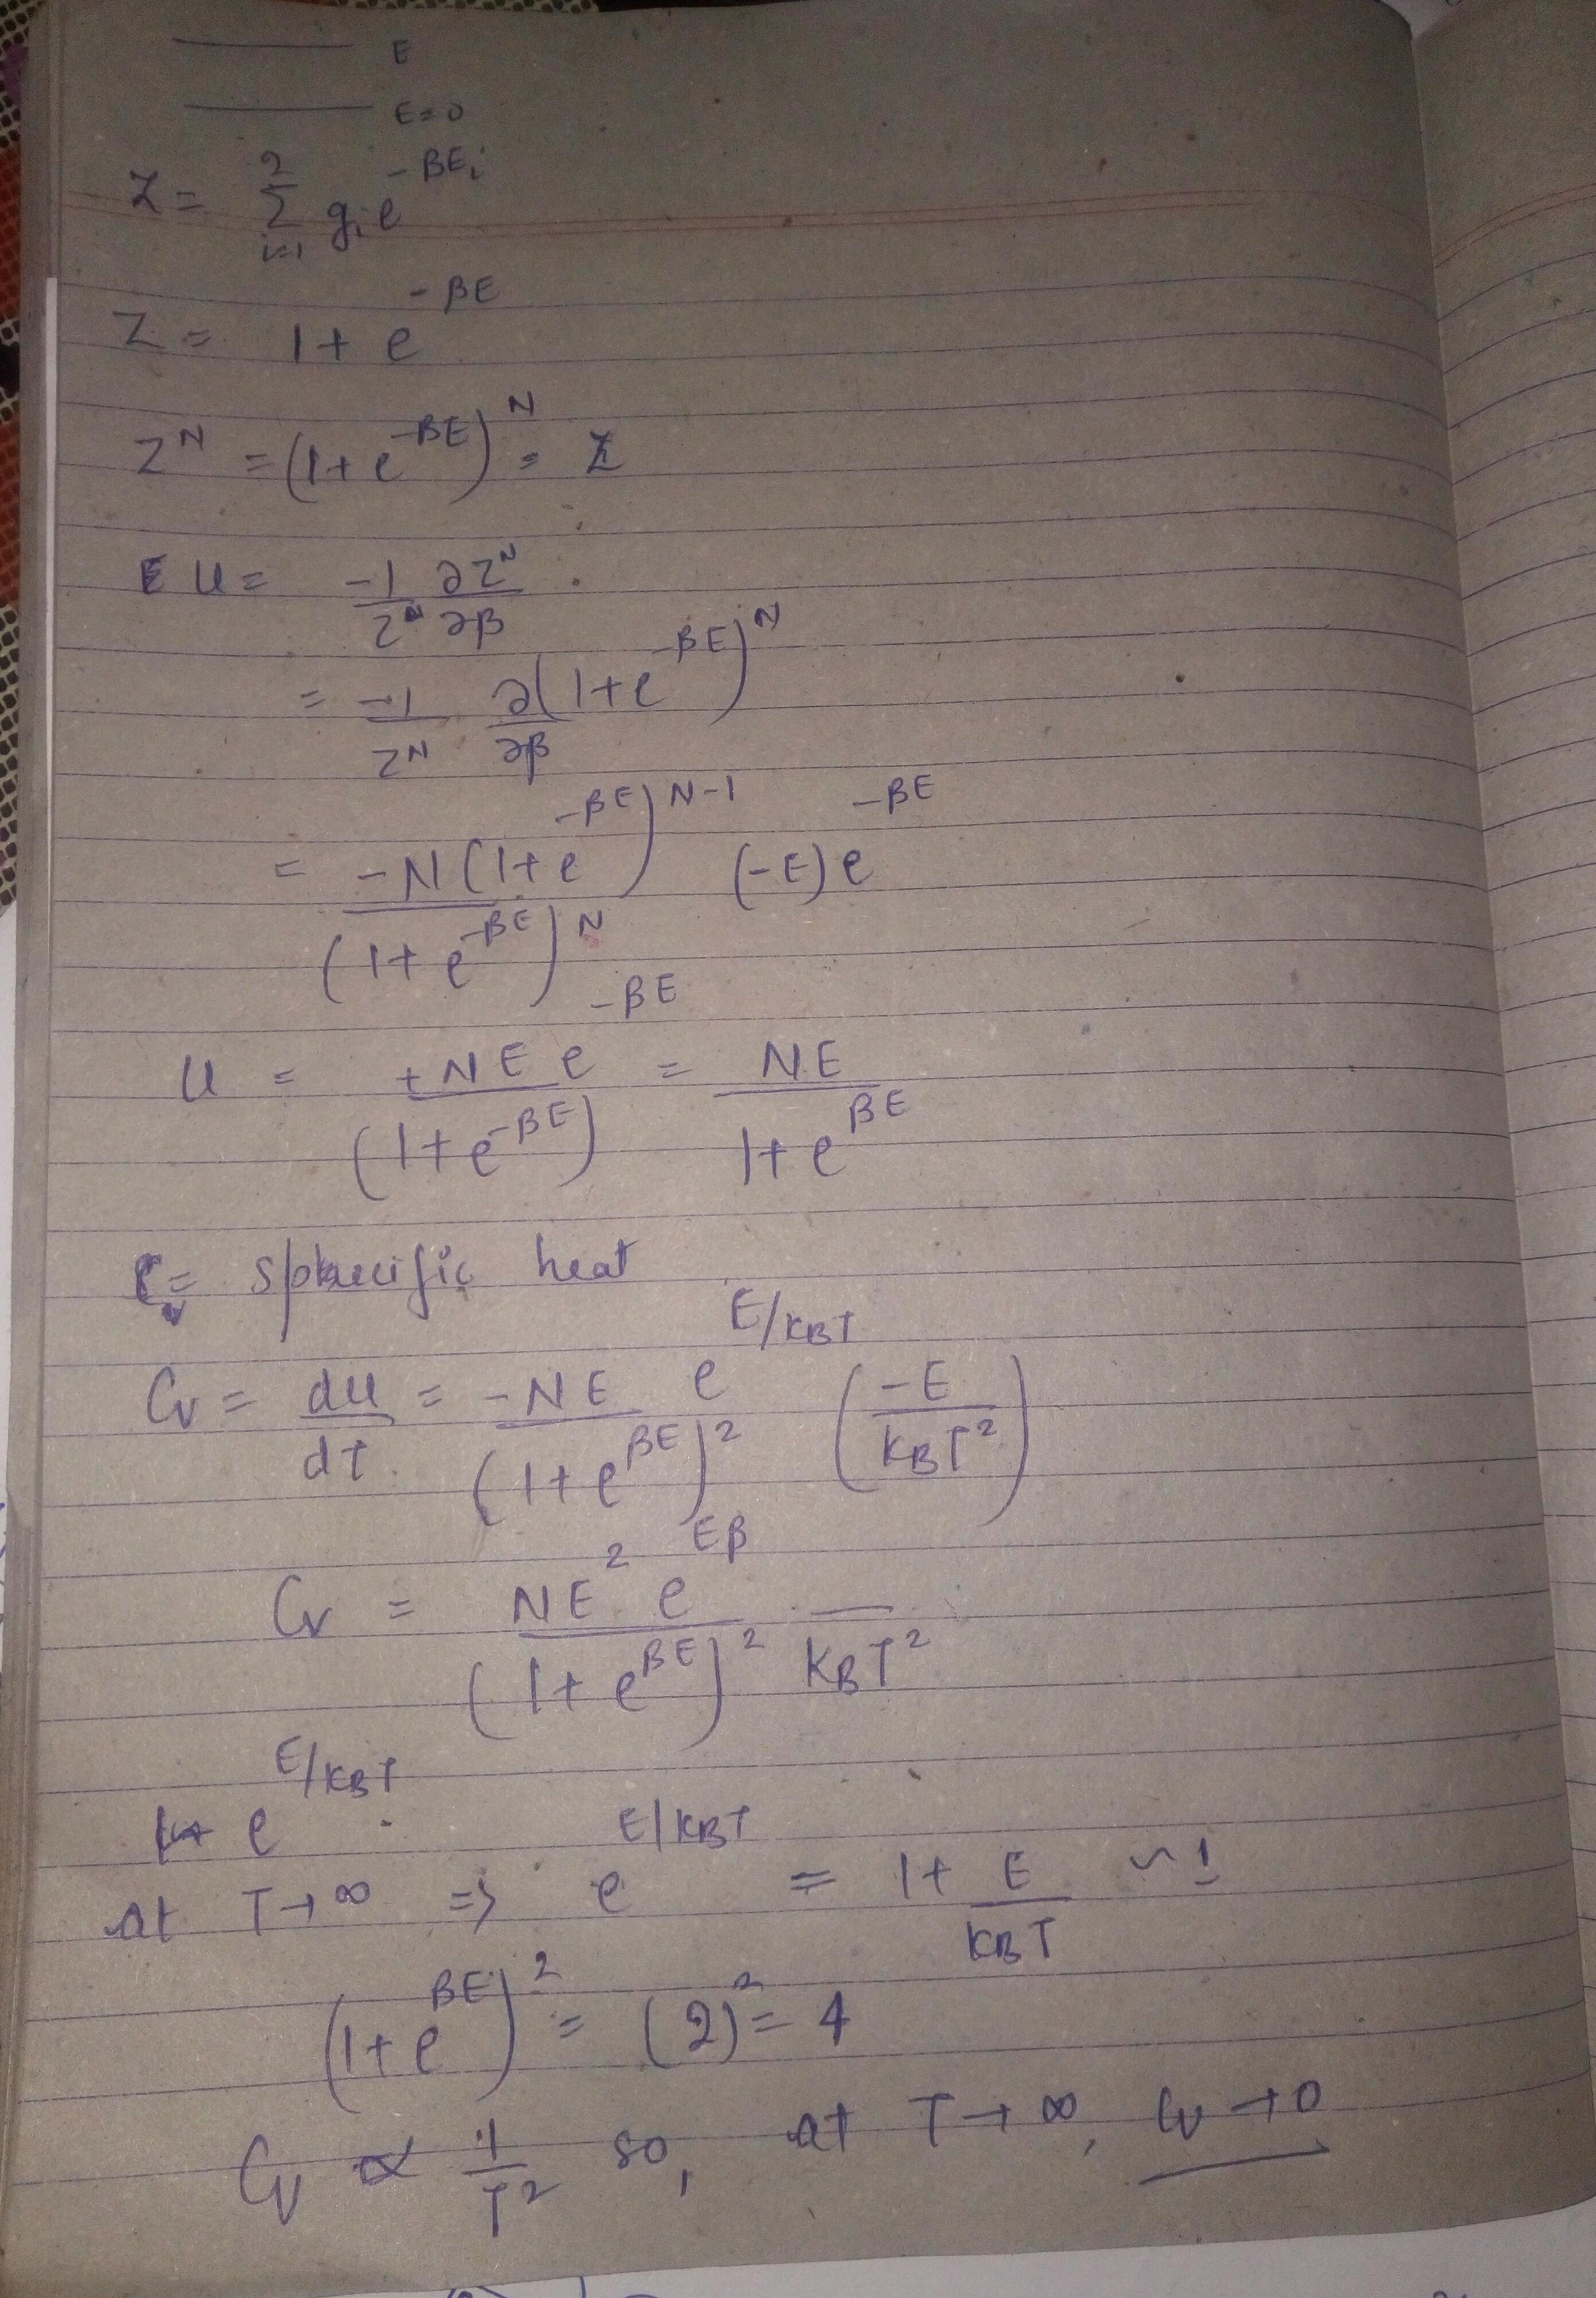 E
E=0
Z = 2 Σ i=1 gᵢ e^-βEᵢ
Z = 1 + e^-βE
Z^N = (1+e^-βE)^N = Z
U = -1/Z^N ∂Z^N/∂β
= -1/Z^N ∂(1+e^-βE)^N/∂β
= -N(1+e^-βE)^N-1/(1+e^-βE)^N (-E)e^-βE
U = +NEe^-βE/(1+e^-βE) = NE/1+e^βE
Cv = heat
Cv = dU/dT = -NE e^E/KBT/(1+e^βE)^2 (-E/KBT^2)
Cv = NE^2 e^Eβ/(1+e^βE)^2 · —/KBT^2
e^E/KBT
at T→∞ => e^E/KBT = 1+E/KBT ~ 1
(1+e^βE)^2 = (2)^2 = 4
Cv ∝ 1/T^2 so, at T→∞, Cv→0